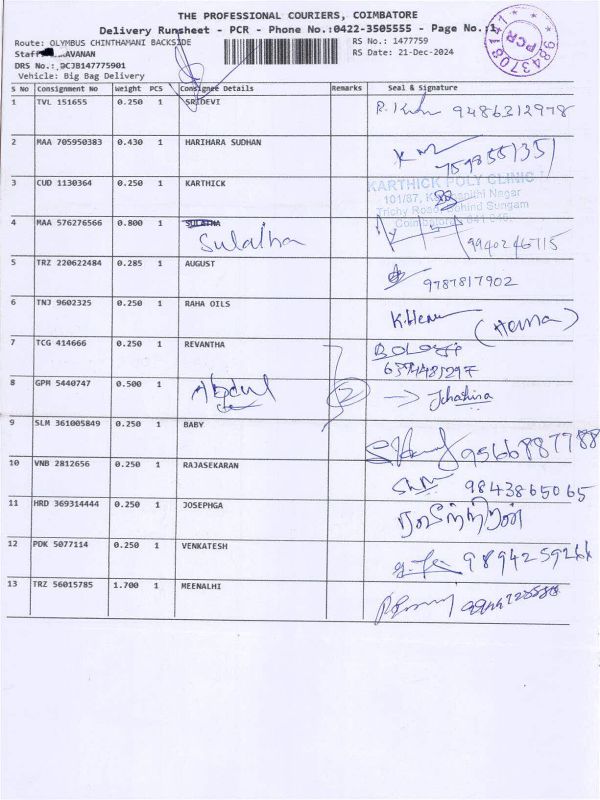 THE PROFESSIONAL COURIERS, COIMBATORE
Delivery Runsheet - PCR - Phone No.:0422-3505555 - Page No.:1
Route: OLYMBUS CHINTHAMANI BACKSIDE RS No.: 1477759
Staff AVANAN RS Date: 21-Dec-2024
DRS No.: DCJB147775901
Vehicle: Big Bag Delivery
PCR
S No Consignment No Weight PCS Consignee Details Remarks Seal & Signature
1 TVL 151655 0.250 1 SRIDEVI 9486312978
2 MAA 705950383 0.430 1 HARIHARA SUDHAN
3 CUD 1130364 0.250 1 KARTHICK KARTHICK POLY CLINIC
Trichy Road, Behind Sungam
4 MAA 576276566 0.800 1 SULATHA
Sulatha 9940246715
5 TRZ 220622484 0.285 1 AUGUST 9787817902
6 TNJ 9602325 0.250 1 RAHA OILS K.Hema (Hema)
7 TCG 414666 0.250 1 REVANTHA
8 GPM 5440747 0.500 1 Abdul 2
9 SLM 361005849 0.250 1 BABY 9566887788
10 VNB 2812656 0.250 1 RAJASEKARAN 9843865065
11 HRD 369314444 0.250 1 JOSEPHGA
12 PDK 5077114 0.250 1 VENKATESH
13 TRZ 56015785 1.700 1 MEENALHI